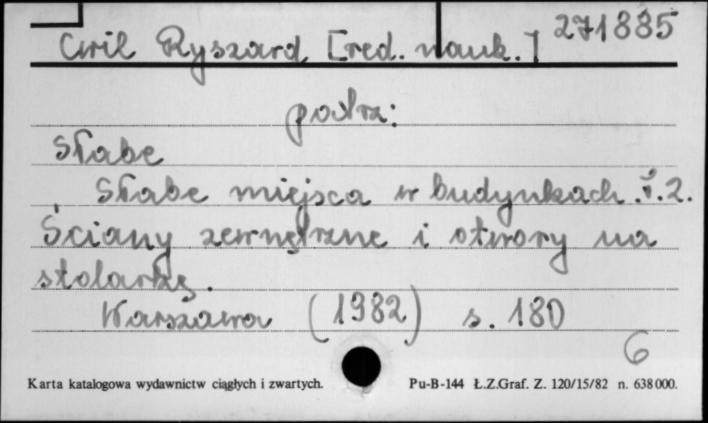 Cwil Ryszard [red. nauk.] 271885
patrz:
Słabe
Słabe miejsca w budynkach. T.2.
Ściany zewnętrzne i otwory na
stolarkę.
Warszawa (1982) s. 180
6
Karta katalogowa wydawnictw ciągłych i zwartych. Pu-B-144 Ł.Z.Graf. Z. 120/15/82 n. 638000.